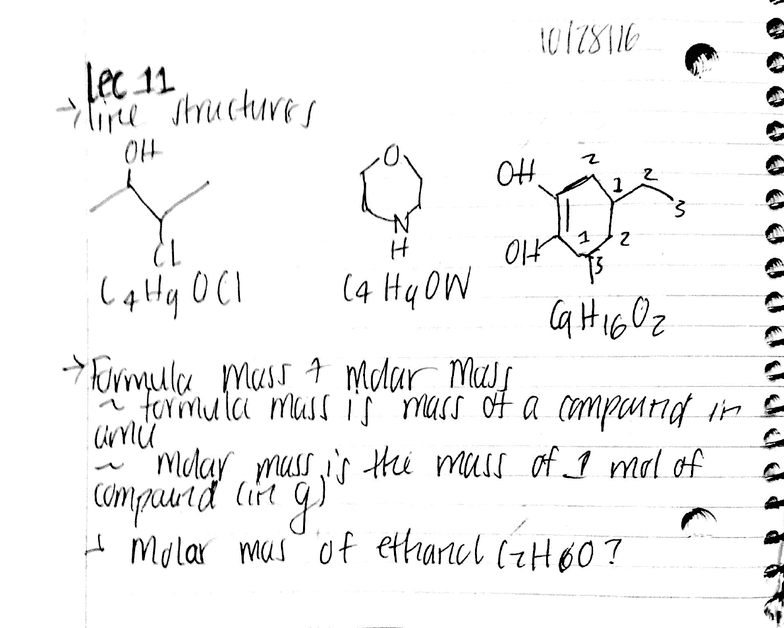 10/28/16
Lec 11
→ line structures
OH
Cl
C4H9OCl
O
N
H
C4H9ON
OH
OH
2
1
2
3
1
2
3
C9H16O2
→ Formula mass + molar mass
~ formula mass is mass of a compound in
amu
~ molar mass is the mass of 1 mol of
compound (in g)
molar mas of ethanol C2H6O?